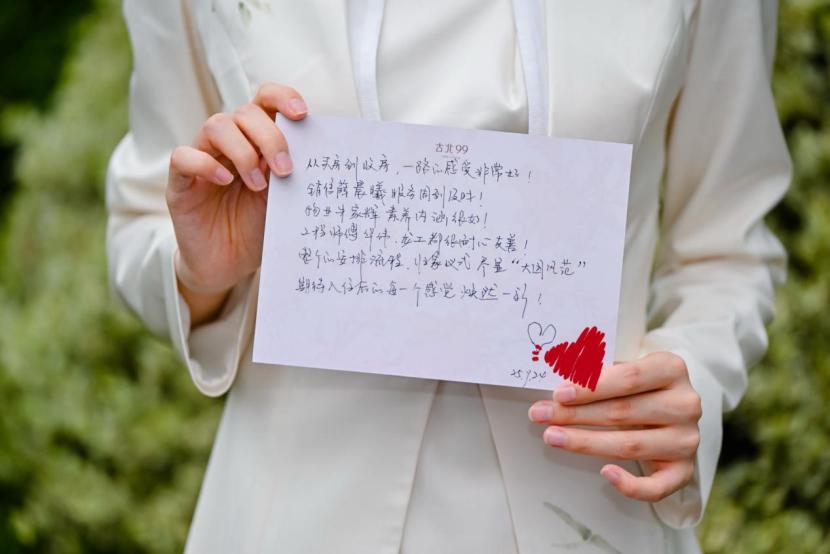 古北99
从买房到收房，一路的感受非常好！
销售薛晨曦服务周到及时！
物业牛家辉素养内涵很好！
工程师傅华伟、老工都很耐心友善！
整个的安排流程，归家仪式尽显“大国风范”
期待入住后的每一个感觉焕然一新！
25.9.24